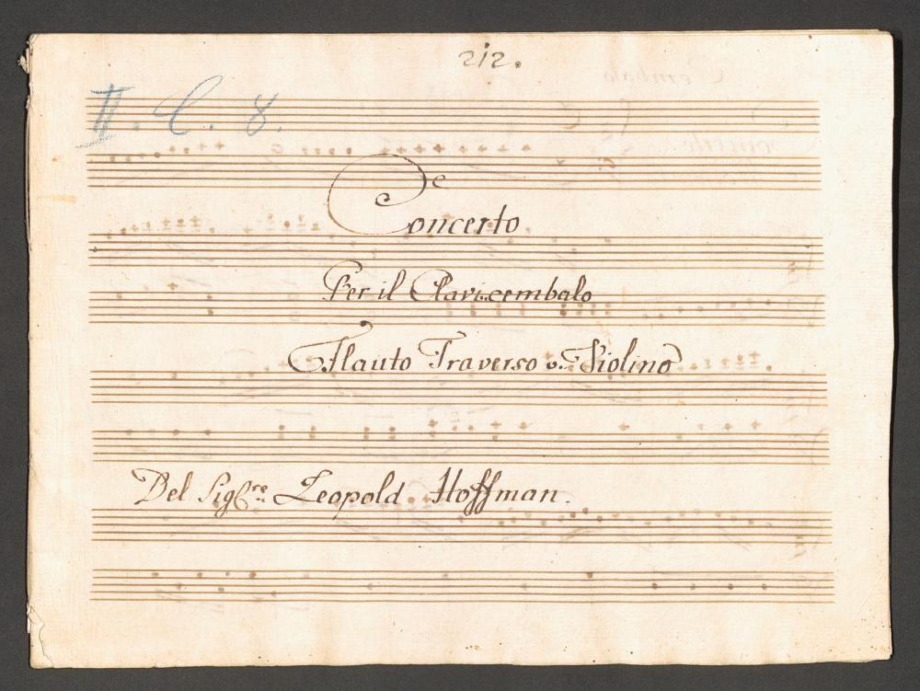 212.
II. C. 8.
Concerto
Per il Clavicembalo
Flauto Traverso o. Violino
Del Sigre: Leopold Hoffman.